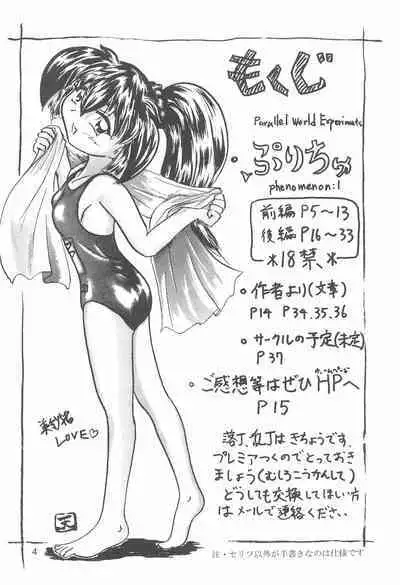 もくじ
Parallel World Experiments
ぷりちゅ
phenomenon:1
前編 P5～13
後編 P16～33
＊18禁＊
・作者より(文章)
P14 P34.35.36
・サークルの予定(未定)
P37
・ご感想等はぜひHPへ
P15
落丁、乱丁はきちょうです。
プレミアつくのでとっておき
ましょう(むしろこうかんして)
どうしても交換してほしい方
はメールで連絡ください。
LOVE♡
4
注・セリフ以外が手書きなのは仕様です